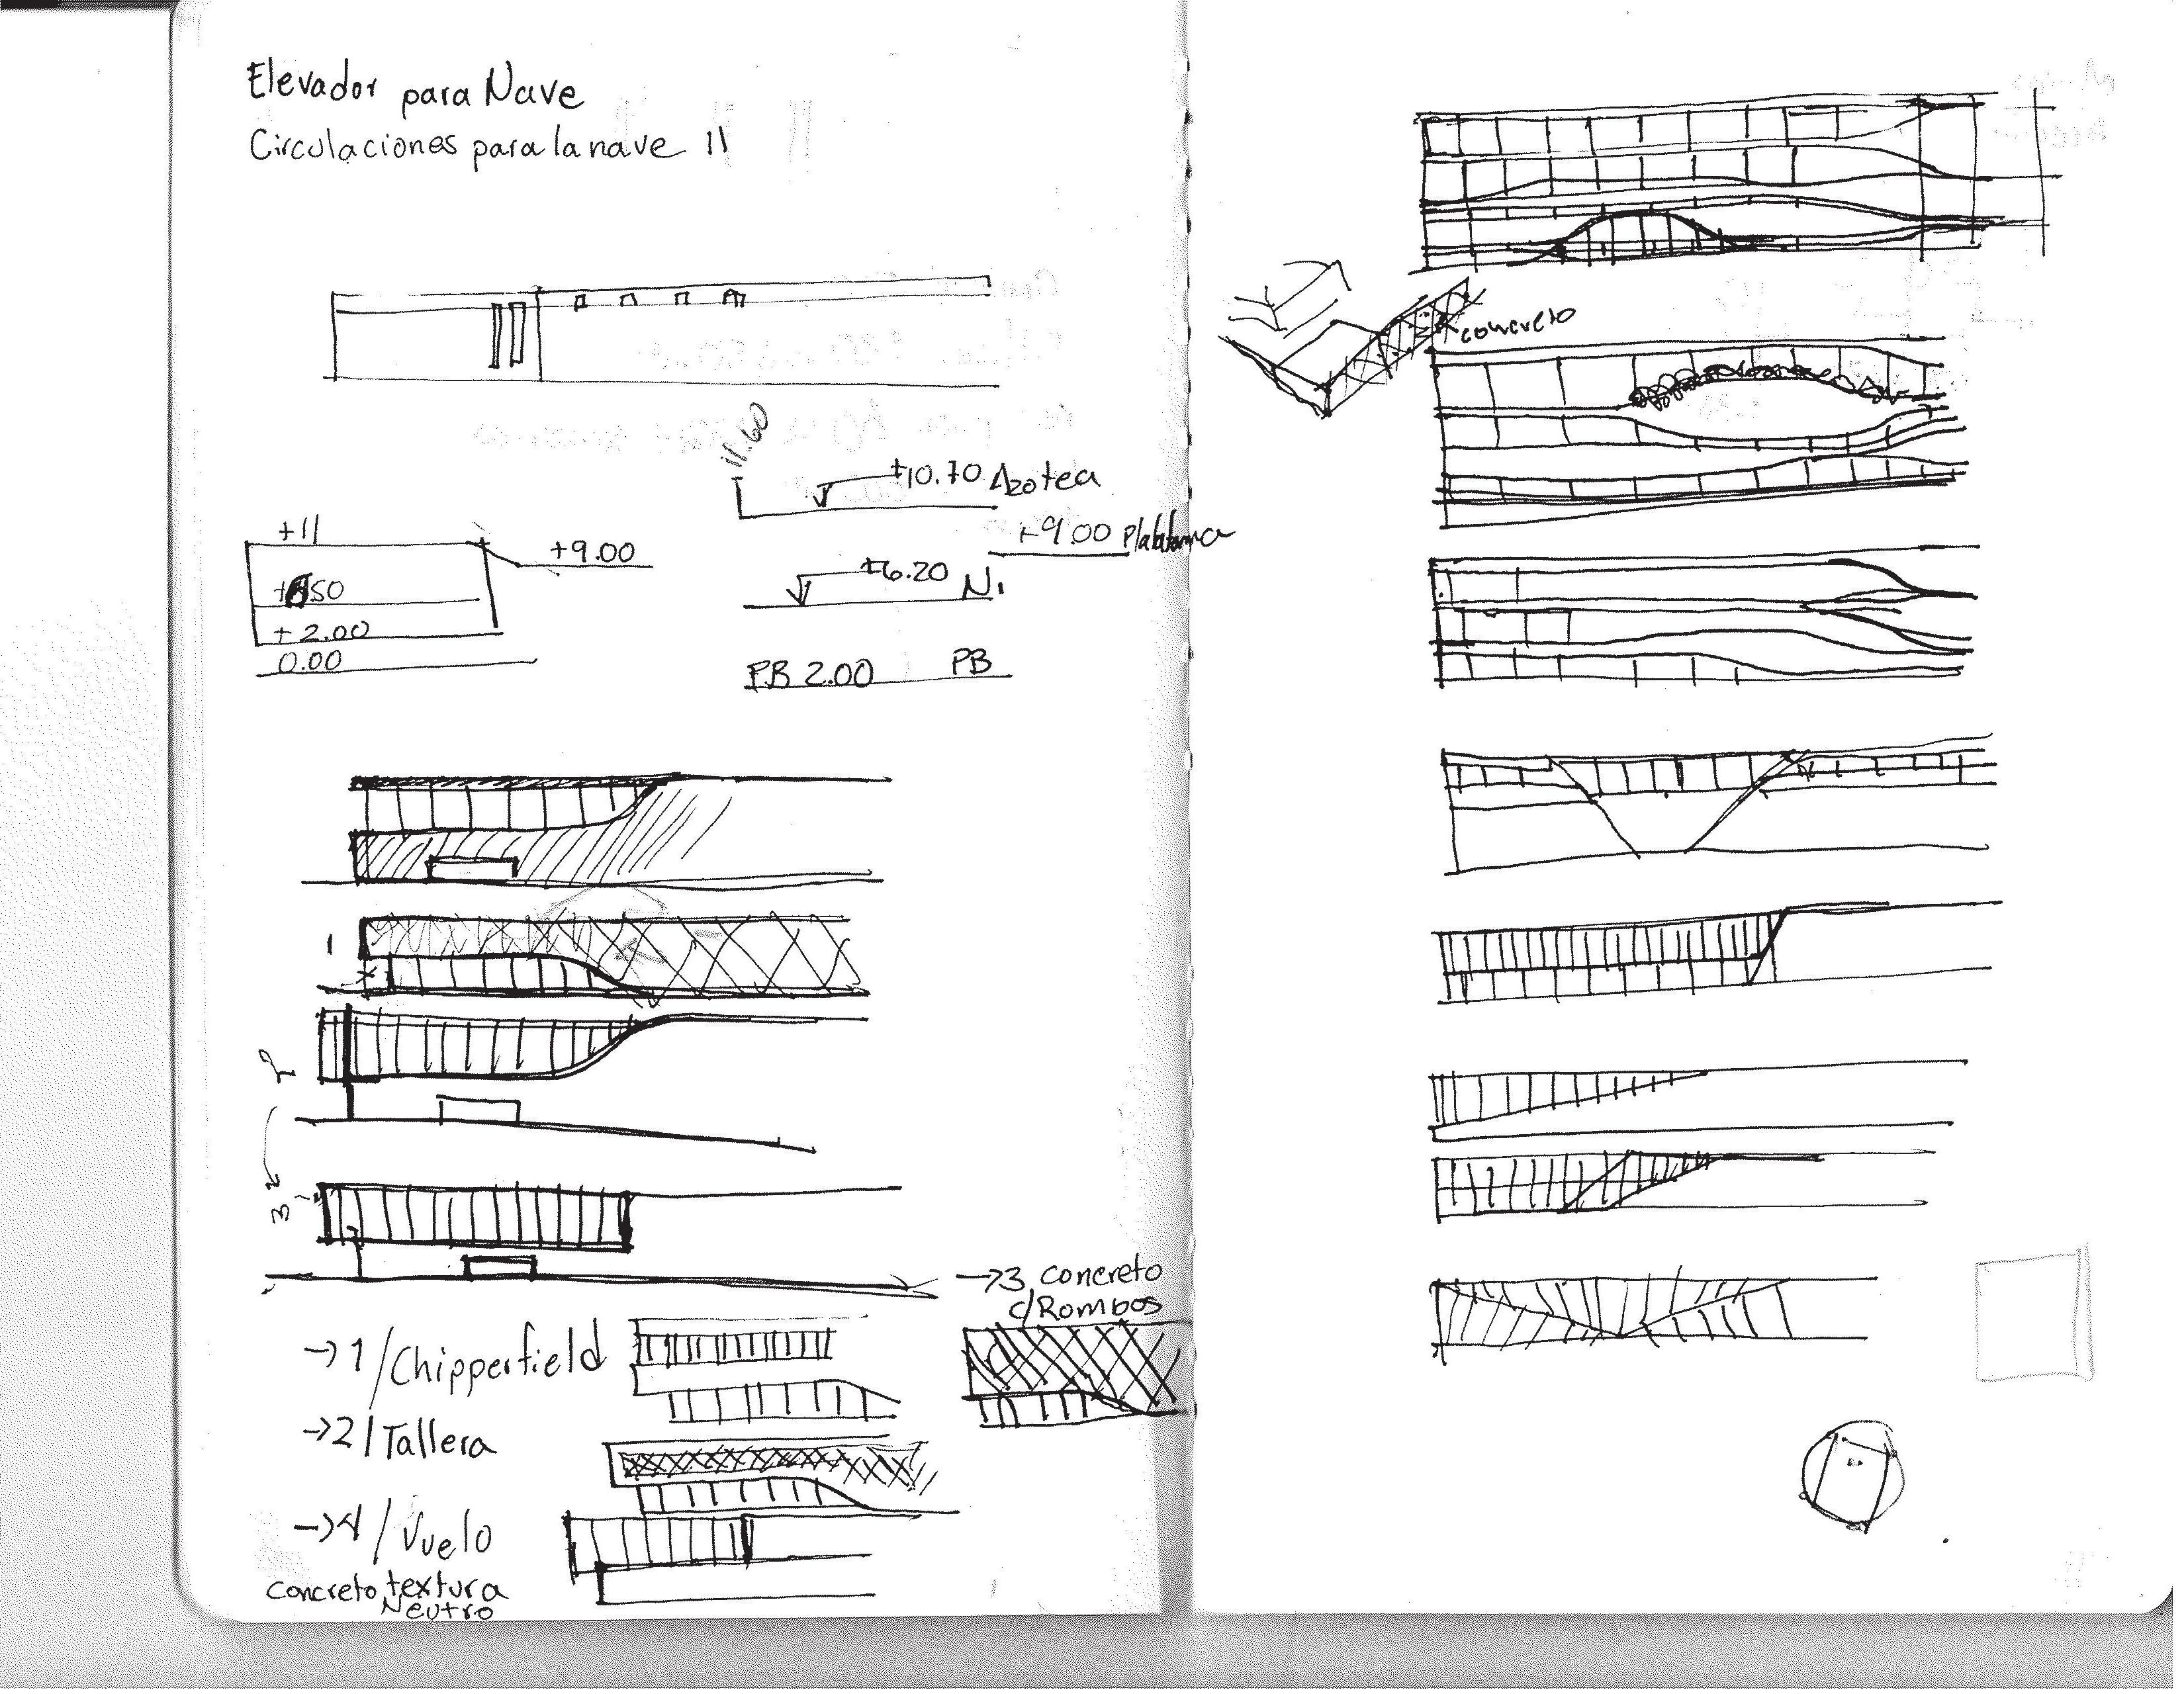 Elevador para Nave
Circulaciones para la nave 11
11.60
+10.70 Azotea
+9.00 Plataforma
+6.20 N1
PB 2.00 PB
+11
+9.00
+2.00
0.00
1
2
3
→3 concreto
c/Rombos
→1/Chipperfield
→2/Tallera
→4/Vuelo
concreto textura
Neutro
concreto